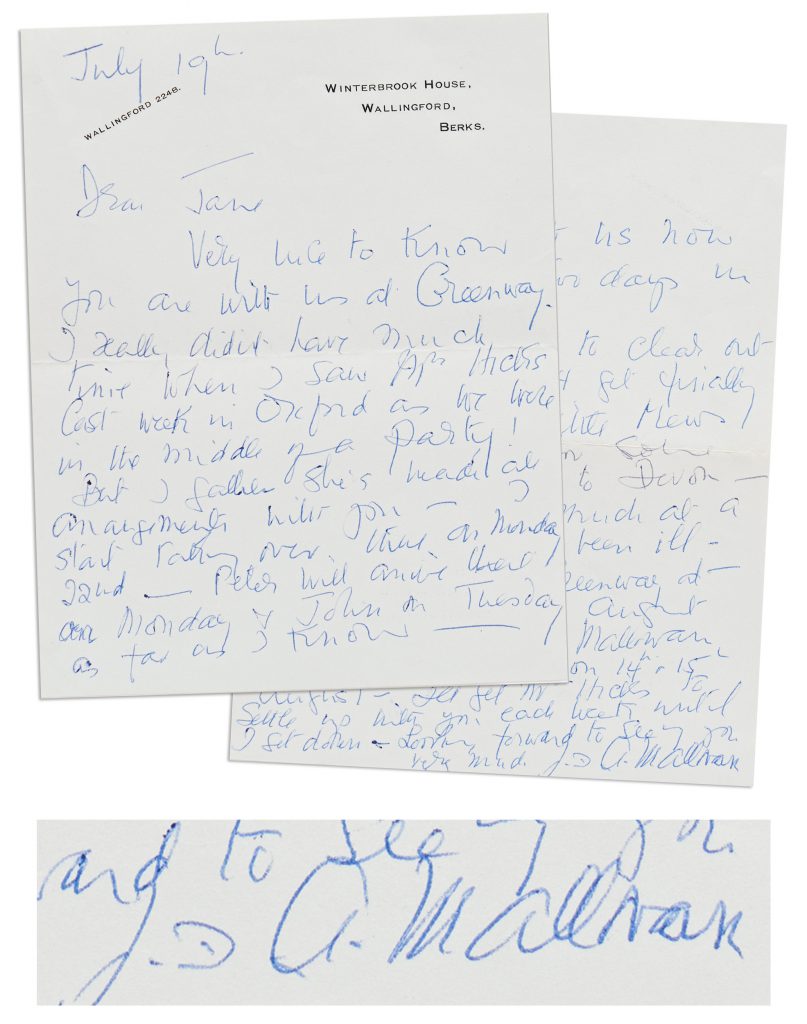 July 19th.
WALLINGFORD 2248.
WINTERBROOK HOUSE,
WALLINGFORD,
BERKS.
Dear Jane
Very nice to know
you are with us at Greenway.
I really didn't have much
time when I saw Mrs Hicks
last week in Oxford as we were
in the middle of a party!
But I gather she's made all
arrangements with you — I
start taking over, there, on Monday
22nd — Peter will arrive there
on Monday & John on Tuesday
as far as I know —
us now
days in
to clear out
get finally
Mews
to Devon —
much at a
been ill –
Greenway at —
August
Mallowan,
on 14th or 15th
August –
settle up with you each week until
I get down – Looking forward to seeing you
very much A. Mallowan
ard to seeing you
A. Mallowan